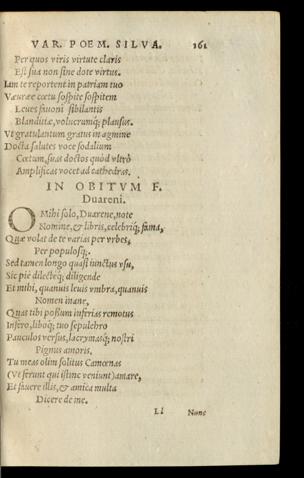 VAR. POEM. SILVA. 161
Per quos viris virtute claris
Est sua non sine dote virtus.
Iam te reportent in patriam tuo
Vauræ cœtu sospite sospitem
Leues fauoni sibilantis
Blanditiæ, volucrumq; plausus.
Vt gratulantum gratus in agmine
Docta salutes voce sodalium
Cœtum, suas doctos quòd vltrò
Amplificas vocet ad cathedras.
IN OBITVM F.
Duareni.
O Mihi solo, Duarene, note
Nomine, & libris, celebriq; fama,
Quæ volat de te varias per vrbes,
Per populosq;.
Sed tamen longo quasi iunctus vsu,
Sic piè dilecteq; diligende
Et mihi, quanuis leuis vmbra, quanuis
Nomen inane,
Quas tibi possum inferias remotus
Infero, liboq; tuo sepulchro
Pauculos versus, lacrymasq; nostri
Pignus amoris.
Tu meas olim solitus Camœnas
(Vt ferunt qui istinc veniunt) amare,
Et fauere illis, & amica multa
Dicere de me.
Ll Nunc